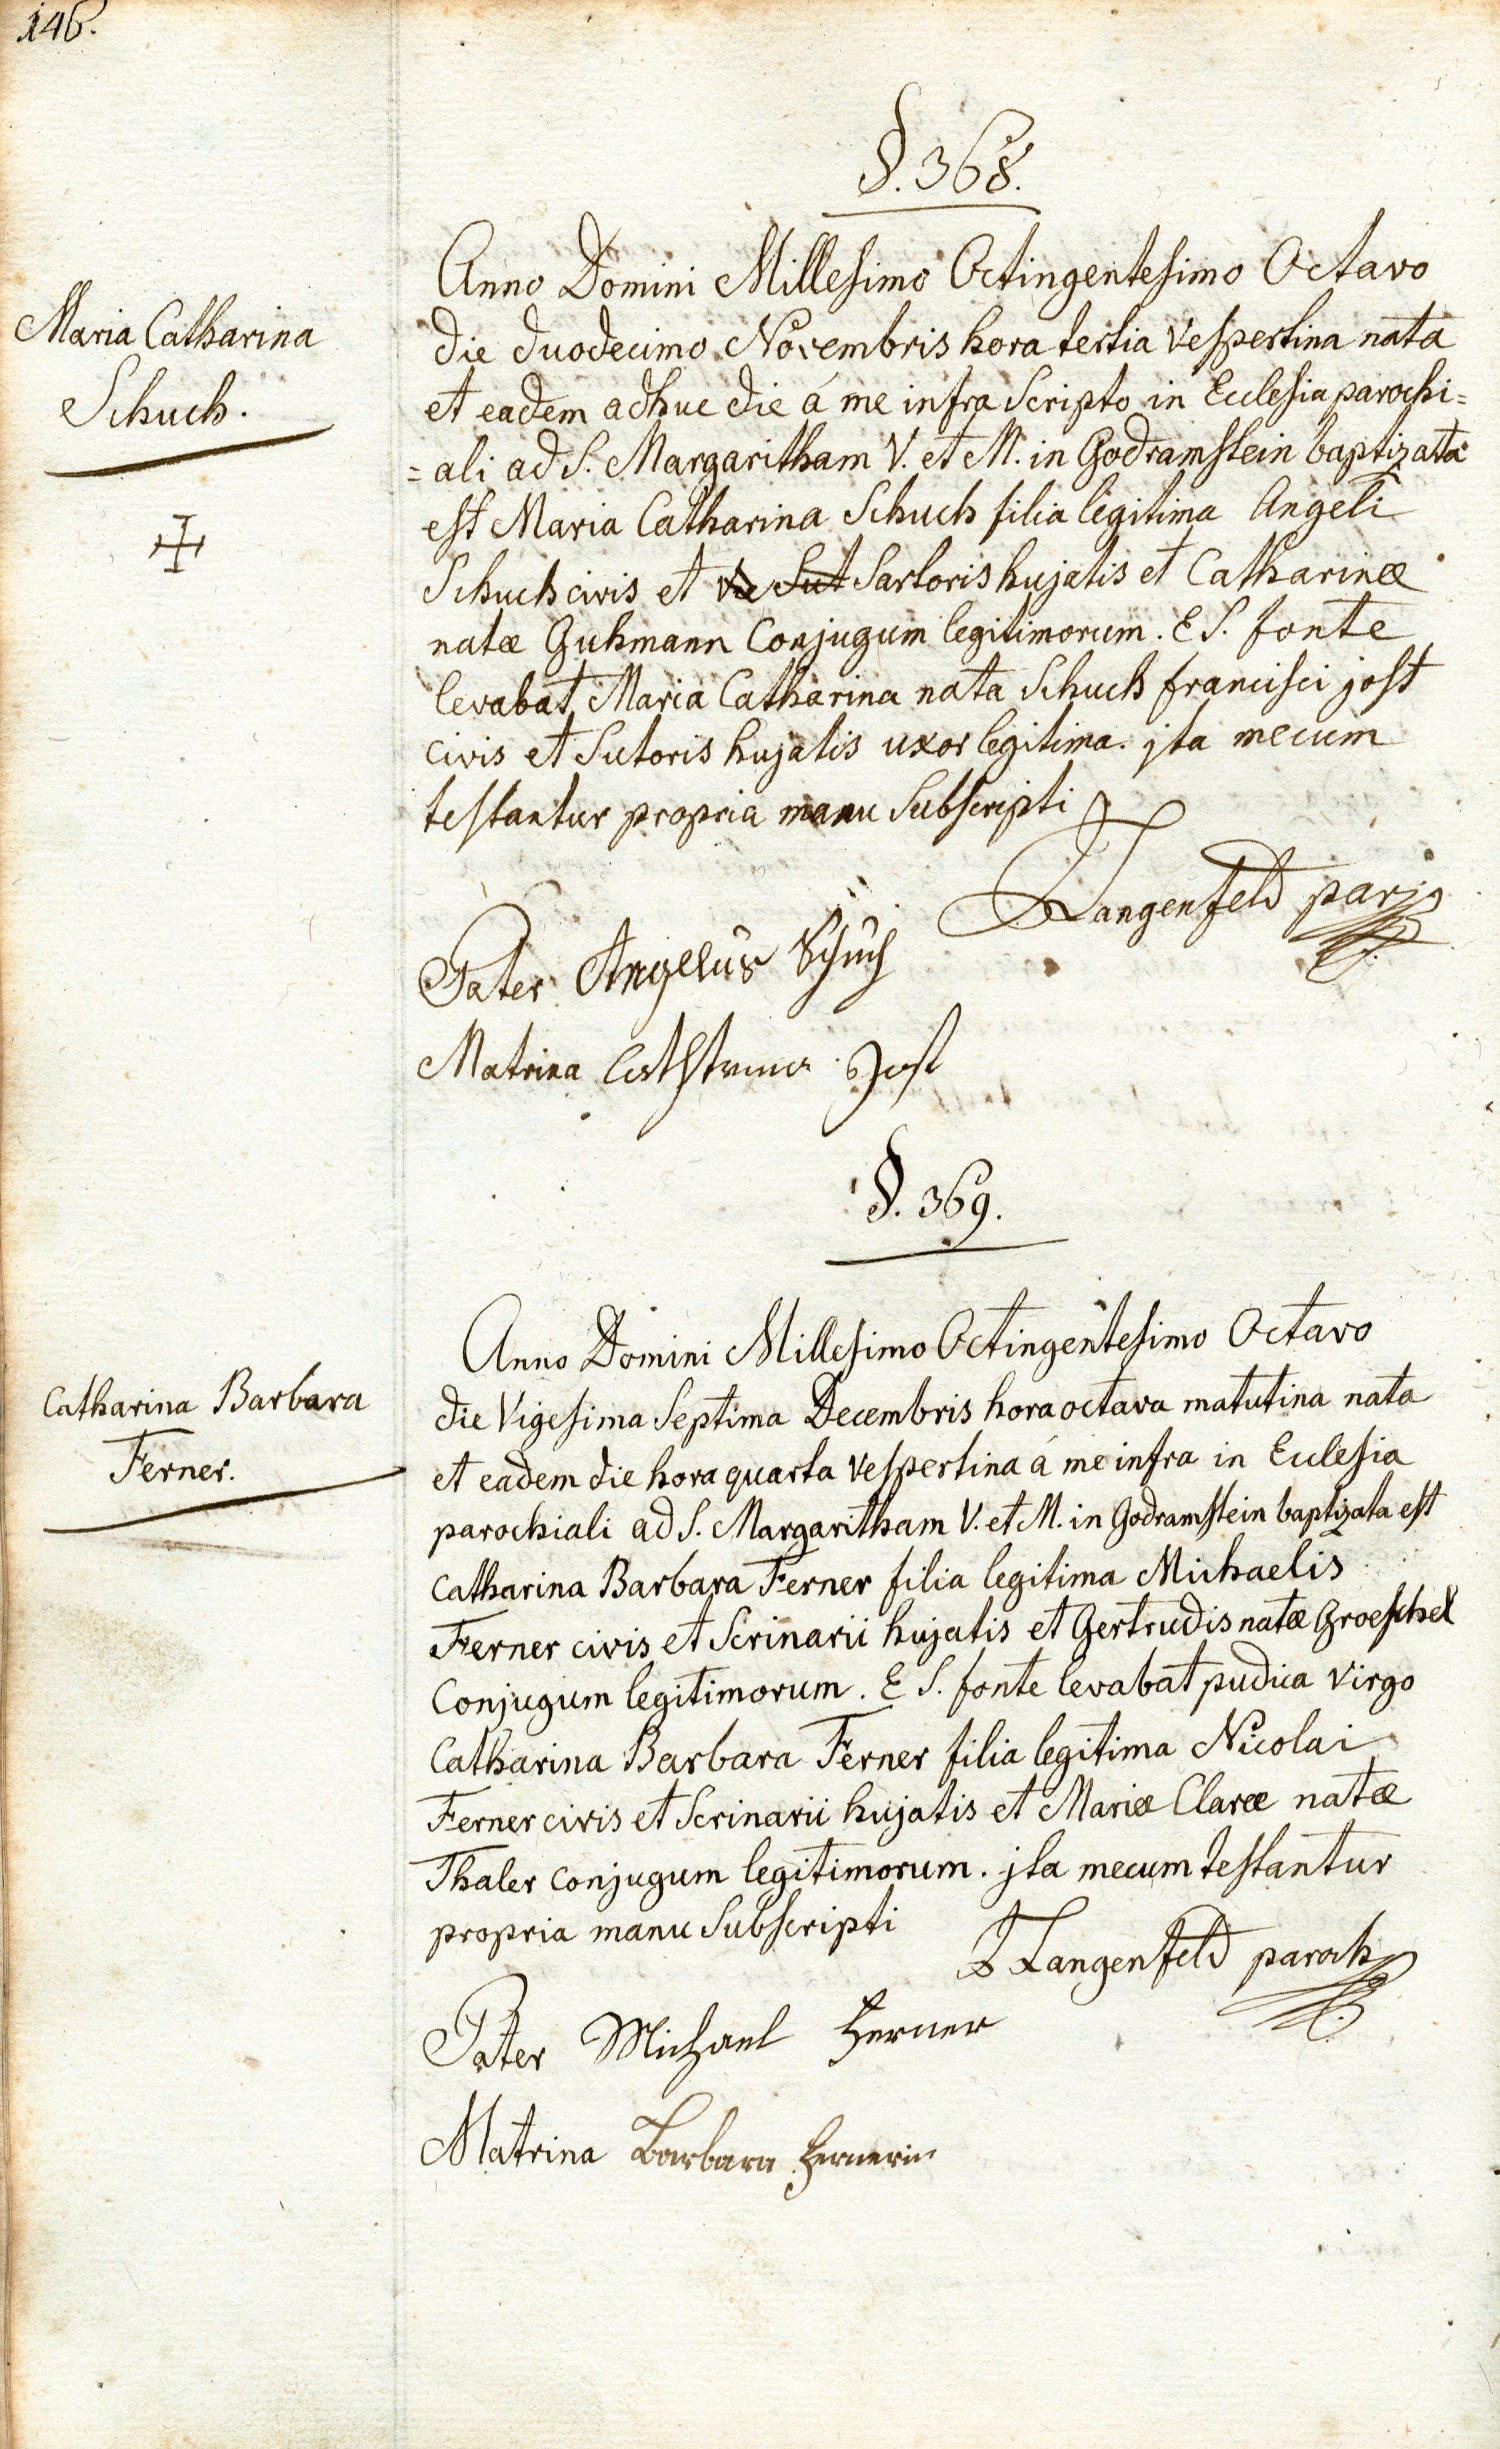 146.
§. 368.
Maria Catharina
Schuch.
Anno Domini Millesimo Octingentesimo Octavo
die duodecimo Novembris hora tertia vespertina nata
et eadem adhuc die á me infra Scripto in Ecclesia parochi=
=ali ad S. Margaritham V. et M. in Godramstein baptizata
est Maria Catharina Schuch filia legitima Angeli
Schuch civis et Sut Sartoris hujatis et Catharinæ
natæ Guhmann Conjugum legitimorum. E S. fonte
levabat Maria Catharina nata Schuch francisci jost
civis et Sutoris hujatis uxor legitima. jta mecum
testantur propria manu Subscripti
Langenfeld par
Pater Angelus Schuch
Matrina Jost
§. 369.
Catharina Barbara
Ferner.
Anno Domini Millesimo Octingentesimo Octavo
die Vigesima Septima Decembris hora octava matutina nata
et eadem die hora quarta vespertina á me infra in Ecclesia
parochiali ad S. Margaritham V. et M. in Godramstein baptizata est
Catharina Barbara Ferner filia legitima Michaelis
Ferner civis et Scrinarii hujatis et Gertrudis natæ Groeschel
Conjugum legitimorum. E S. fonte levabat pudica virgo
Catharina Barbara Ferner filia legitima Nicolai
Ferner civis et Scrinarii hujatis et Mariæ Claræ natæ
Thaler conjugum legitimorum. jta mecum testantur
propria manu Subscripti
Langenfeld paroch
Pater Michael Ferner
Matrina Barbara Fernerin